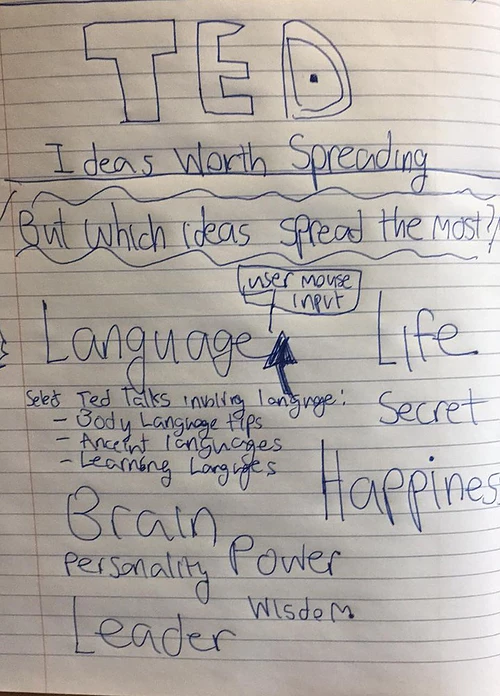 TED
Ideas Worth Spreading
But which ideas spread the most?
user mouse
input
Language
Life
Select Ted Talks involving language:
- Body Language tips
- Ancient languages
- Learning Languages
Secret
Happines
Brain
Personality Power
Wisdom
Leader